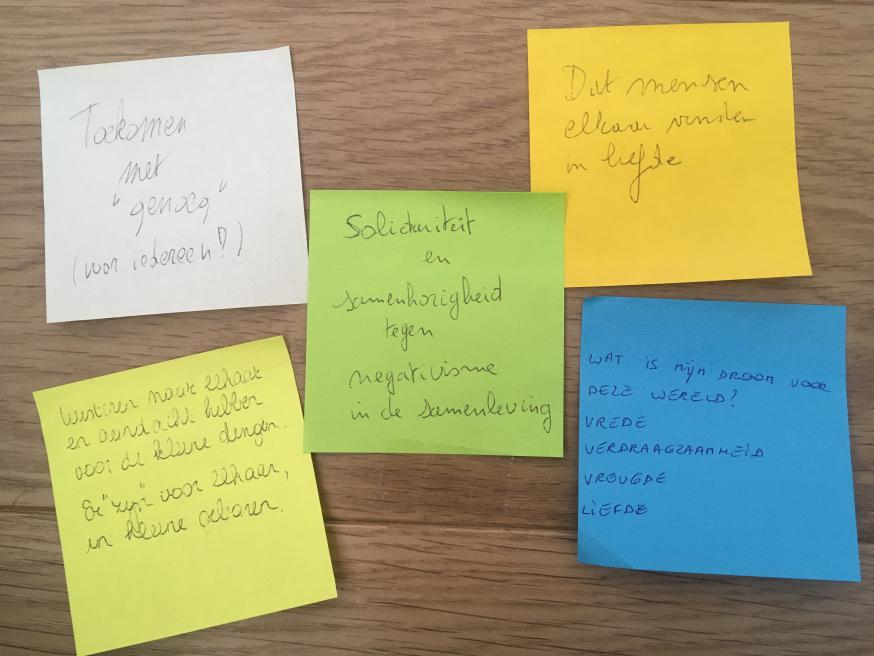 Toekomen
met
"genoeg"
(voor iedereen?)
Dat mensen
elkaar vinden
in liefde
Solidariteit
en
samenhorigheid
tegen
negativisme
in de samenleving
Luisteren naar elkaar
en aandacht hebben
voor de kleine dingen.
Er "zijn" voor elkaar,
in kleine gebaren.
WAT IS MIJN DROOM VOOR
DEZE WERELD?
VREDE
VERDRAAGZAAMHEID
VREUGDE
LIEFDE